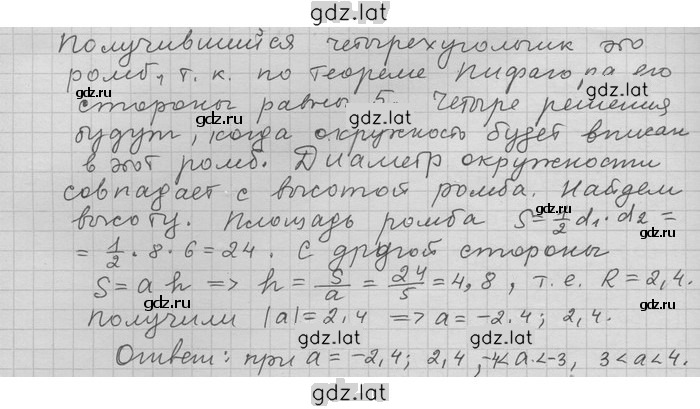 gdz.lat
Получившийся четырехугольник это
ромб, т.к. по теореме Пифагора его
gdz.lat gdz.lat
стороны равны 5. Четыре решения
gdz.lat
будут, когда окружность будет вписан
в этот ромб. Диаметр окружности
gdz.lat gdz.lat
совпадает с высотой ромба. Найдем
gdz.lat gdz.lat
высоту. Площадь ромба S = 1/2 d₁·d₂ =
= 1/2 · 8 · 6 = 24. С другой стороны
gdz.lat
S = a h => h = S/a = 24/5 = 4,8, т.е. R = 2,4.
gdz.lat gdz.lat
Получили |a| = 2,4 => a = -2,4; 2,4.
gdz.lat
Ответ: при a = -2,4; 2,4, -4<a<-3, 3<a<4.
gdz.lat gdz.lat
gdz.lat